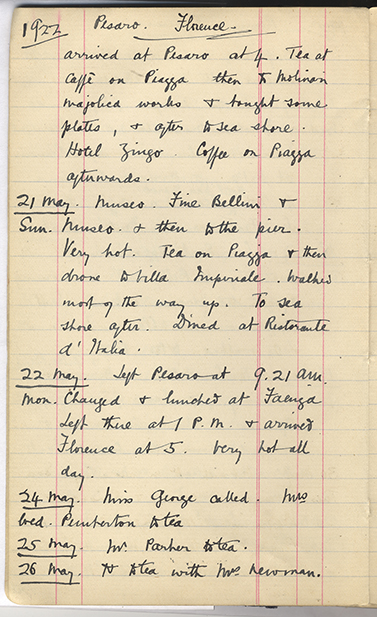 1922 Pesaro. Florence.
arrived at Pesaro at 4. Tea at
Caffè on Piazza then to Molinari
majolica works & bought some
plates, & after to sea shore.
Hotel Zingo. Coffee on Piazza
afterwards.
21 May. Museo. Fine Bellini &
Sun. Museo. & then to the pier.
Very hot. Tea on Piazza & then
drove to Villa Imperiale. Walked
most of the way up. To sea
shore after. Dined at Ristorante
d'Italia.
22 May. Left Pesaro at 9.21 am.
Mon. Changed & lunched at Faenza
Left there at 1 P.M. & arrived
Florence at 5. Very hot all
day.
24 May. Miss George called. Mrs
Wed. Pemberton to tea
25 May. Mr. Parker to tea.
26 May. to tea with Mrs Newman.